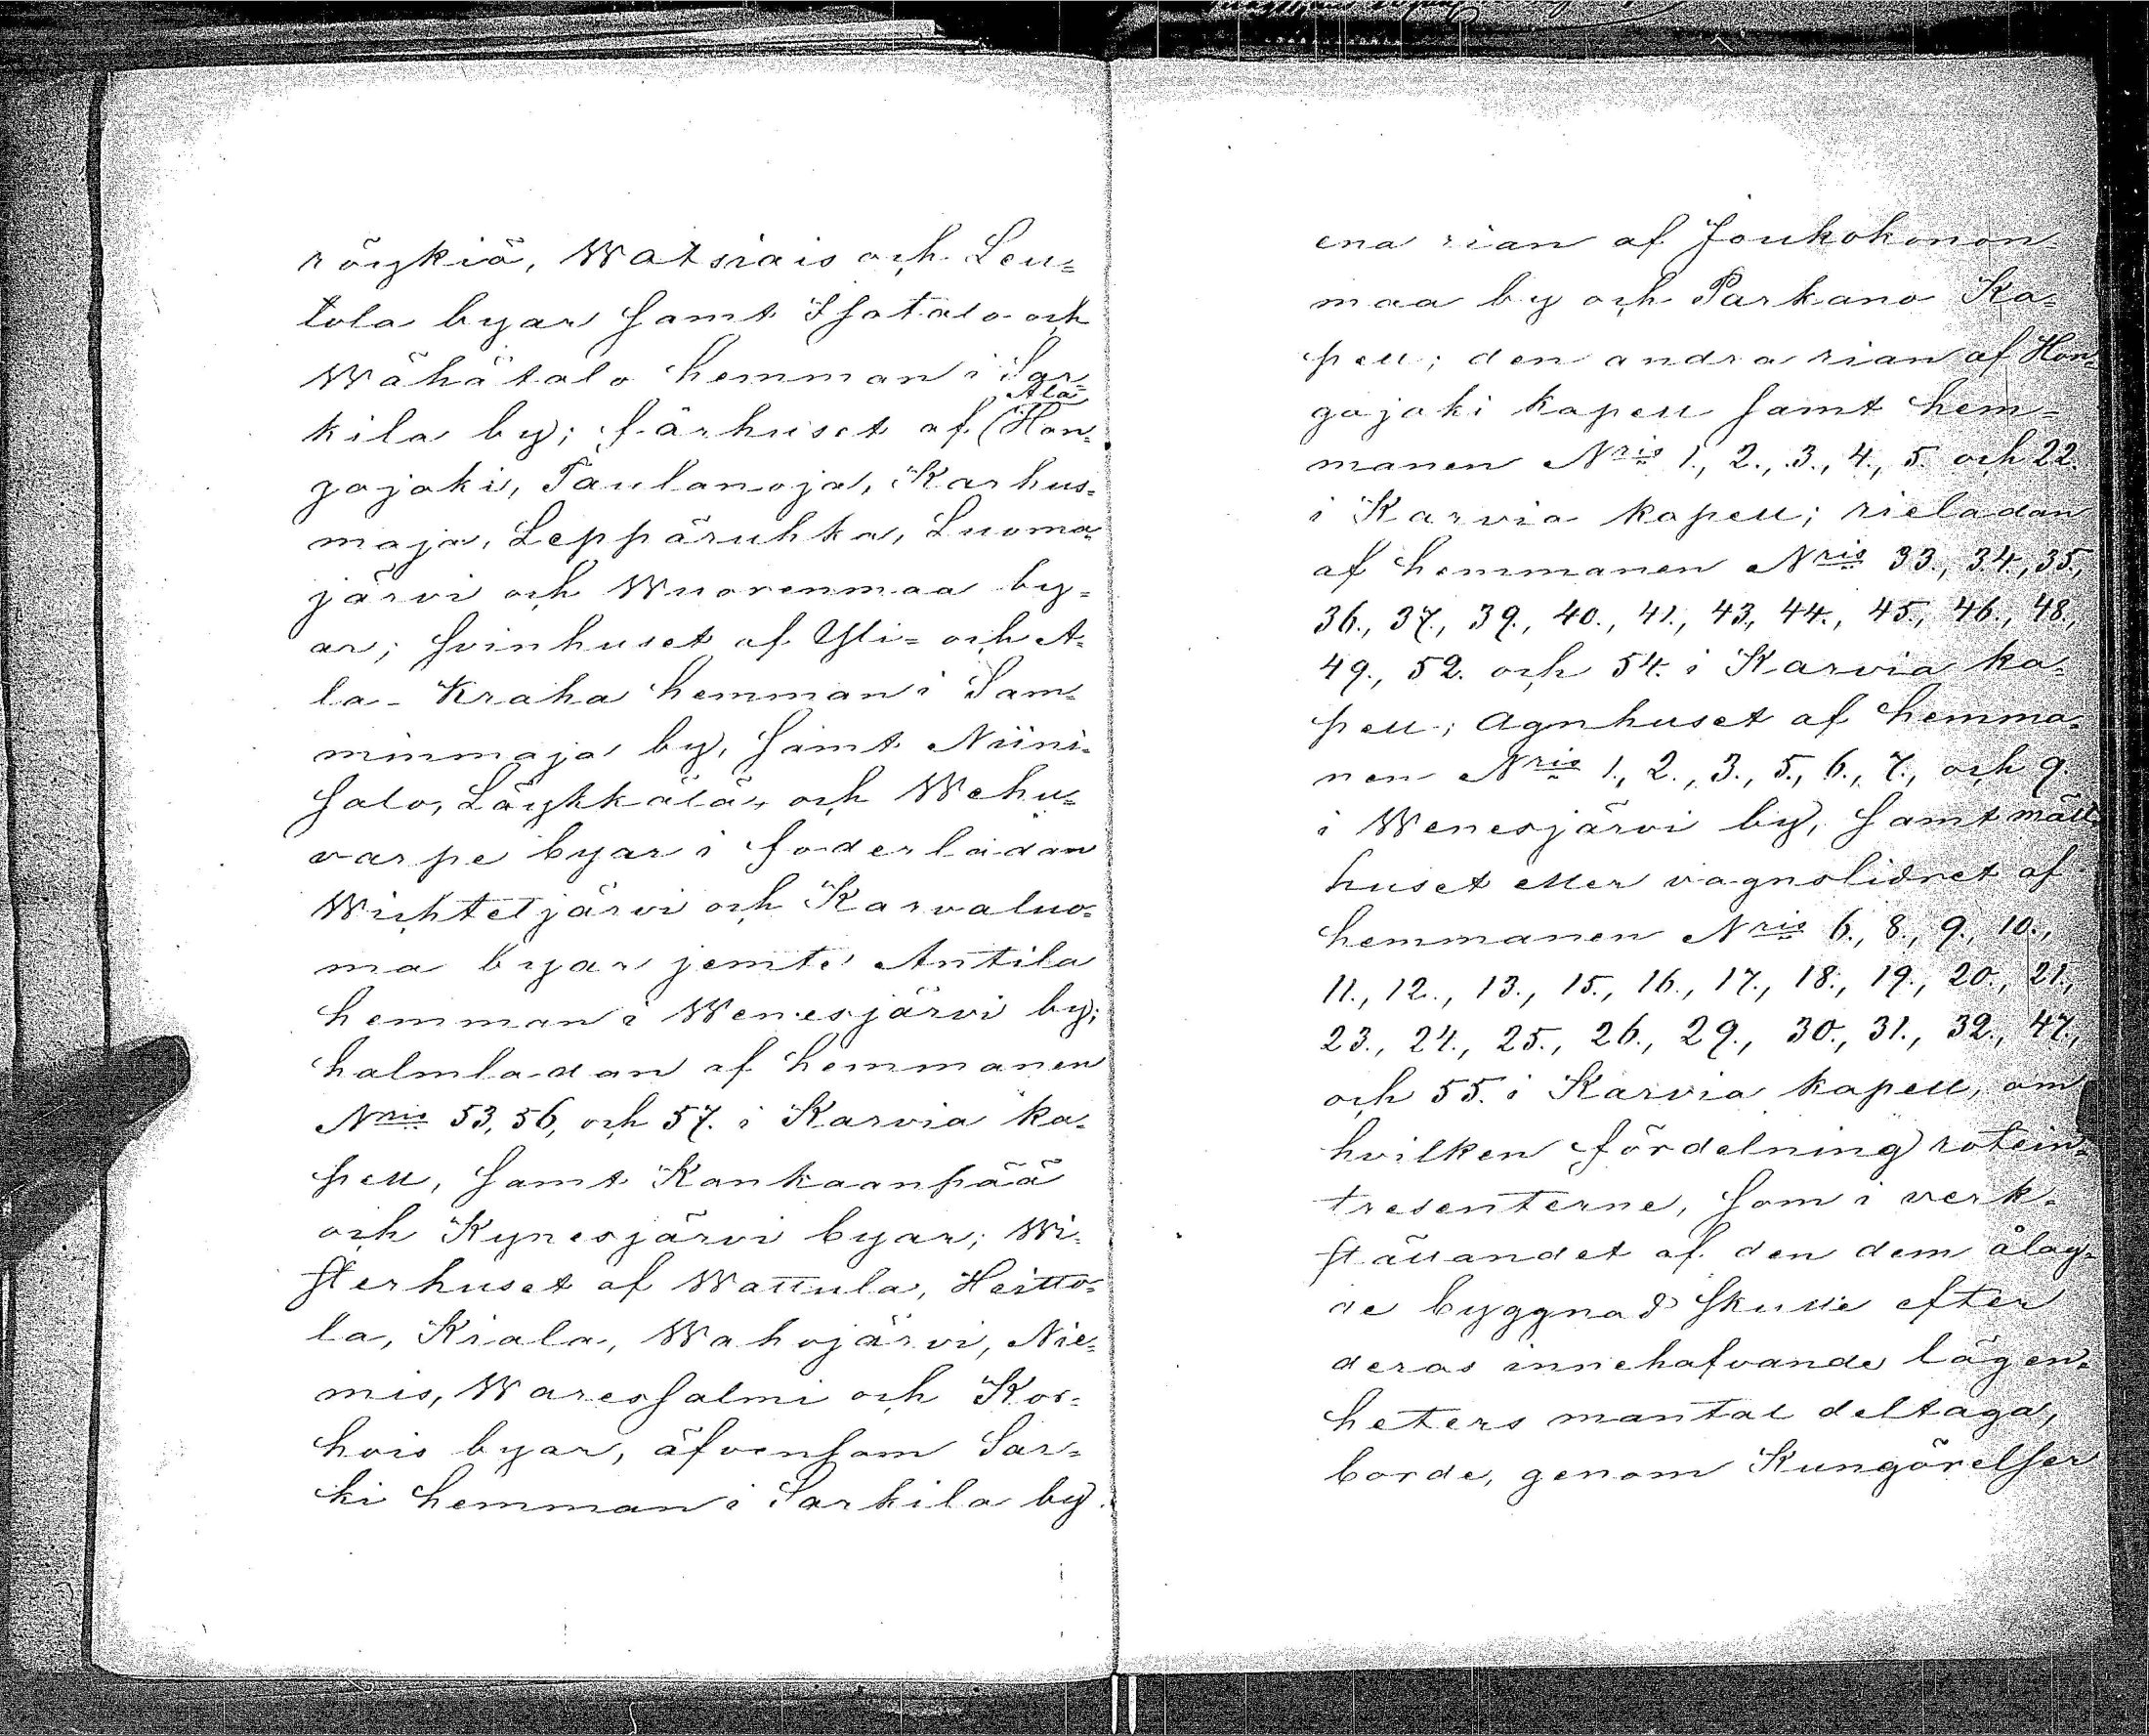 röykiö, Watsiais och Leu=
tola byar samt Isotalo och
Wähätalo hemman i Sar=
kila by; fårhuset af (Hon=
Ala
gojoki, Taulanoja, Karhus=
maja, Leppäruhka, Luoma=
järvi och Wuorenmaa by=
ar; svinhuset af Yli= och A=
la-Kraha hemman i Sam=
minmaja by, samt Niini=
salo, Löykkälä, och Wehu=
varpe byar i foderladan
Wihteljärvi och Karvaluo=
ma byar jemte Antila
hemman i Wenesjärvi by;
halmladan af hemmanen
Nris 53, 56, och 57. i Karvia ka=
pell, samt Kankaanpää
och Kynesjärvi byar; Wi=
sterhuset af Wattula, Heitto=
la, Kiala, Wahojärvi, Nie=
mis, Waressalmi och Kor=
hois byar, äfvensom Sar=
ki hemman i Sarkila by.
ena rian af Joukokonon=
maa by och Parkano Ka=
pell; den andra rian af Hon=
gojoki kapell samt hem=
manen Nris 1., 2., 3., 4., 5. och 22.
i Karvia kapell; rieladan
af hemmanen Nris 33., 34., 35.,
36., 37., 39., 40., 41., 43., 44., 45., 46., 48.,
49., 52. och 54. i Karvia ka=
pell; Agnhuset af hemma=
nen Nris 1., 2., 3., 5., 6., 7., och 9.
i Wenesjärvi by, samt mält=
huset eller vagnslidret af
hemmanen Nris 6., 8., 9., 10.,
11., 12., 13., 15., 16., 17., 18., 19., 20., 21.,
23., 24., 25., 26., 29., 30., 31., 32., 47.,
och 55. i Karvia kapell, om
hvilken fördelning rotein=
tresenterne, som i verk=
ställandet af den dem ålag=
de byggnad skulle efter
deras innehafvande lägen=
heters mantal deltaga,
borde, genom Kungörelser